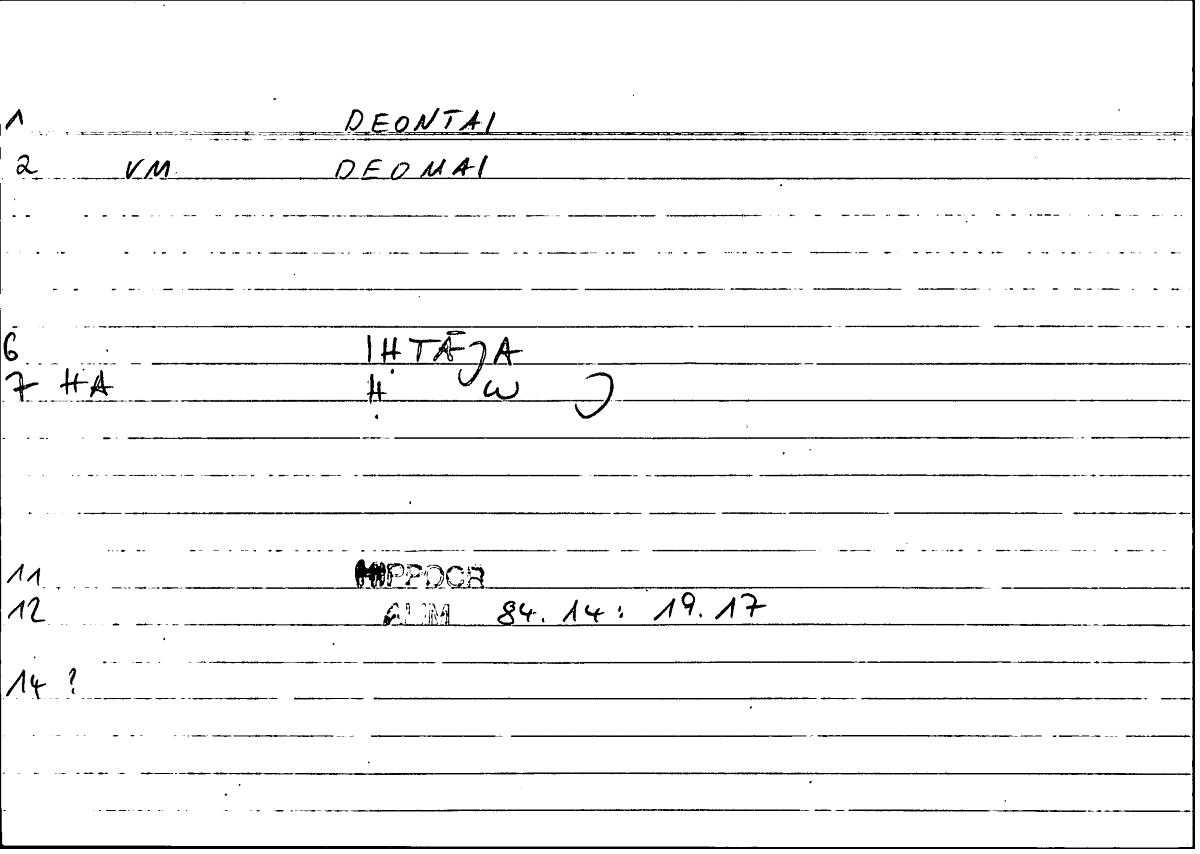 1 DEONTAI
2 VM DEOMAI
6 IḤTĀJA
7 HA Ḥ W J
11 HIPPOCR
12 ALIM 84.14: 19.17
14 ?